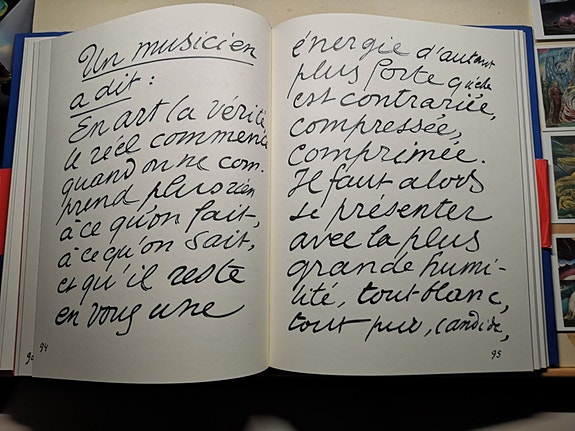 Un musicien
a dit :
En art la vérité
le réel commence
quand on ne com-
prend plus rien
à ce qu'on fait,
à ce qu'on sait,
et qu'il reste
en vous une
94
énergie d'autant
plus forte qu'elle
est contrariée,
compressée,
comprimée.
Il faut alors
se présenter
avec la plus
grande humi-
lité, tout blanc,
tout pur, candide,
95